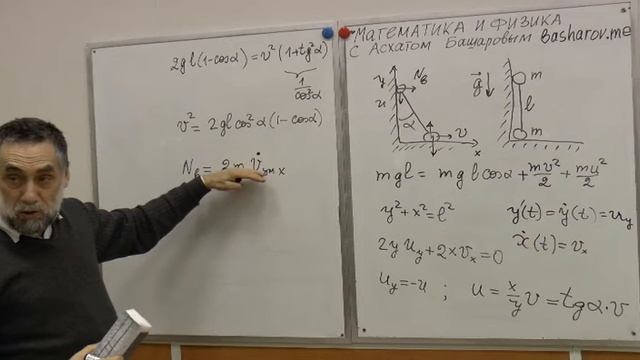 2gl(1-cosα)=v²(1+tg²α)
1/cos²α
v²=2gl cos²α(1-cosα)
N_B = 2m v̇_цм x
МАТЕМАТИКА И ФИЗИКА
С АСХАТОМ БАШАРОВЫМ basharov.me
y
N_B
u
α
v
x
g
m
l
m
mgl = mgl cosα + mv²/2 + mu²/2
y²+x²=l²
y'(t)=ẏ(t)=v_y
2y u_y+2x v_x=0
ẋ(t)=v_x
u_y=-u ; u = x/y v = tgα·v